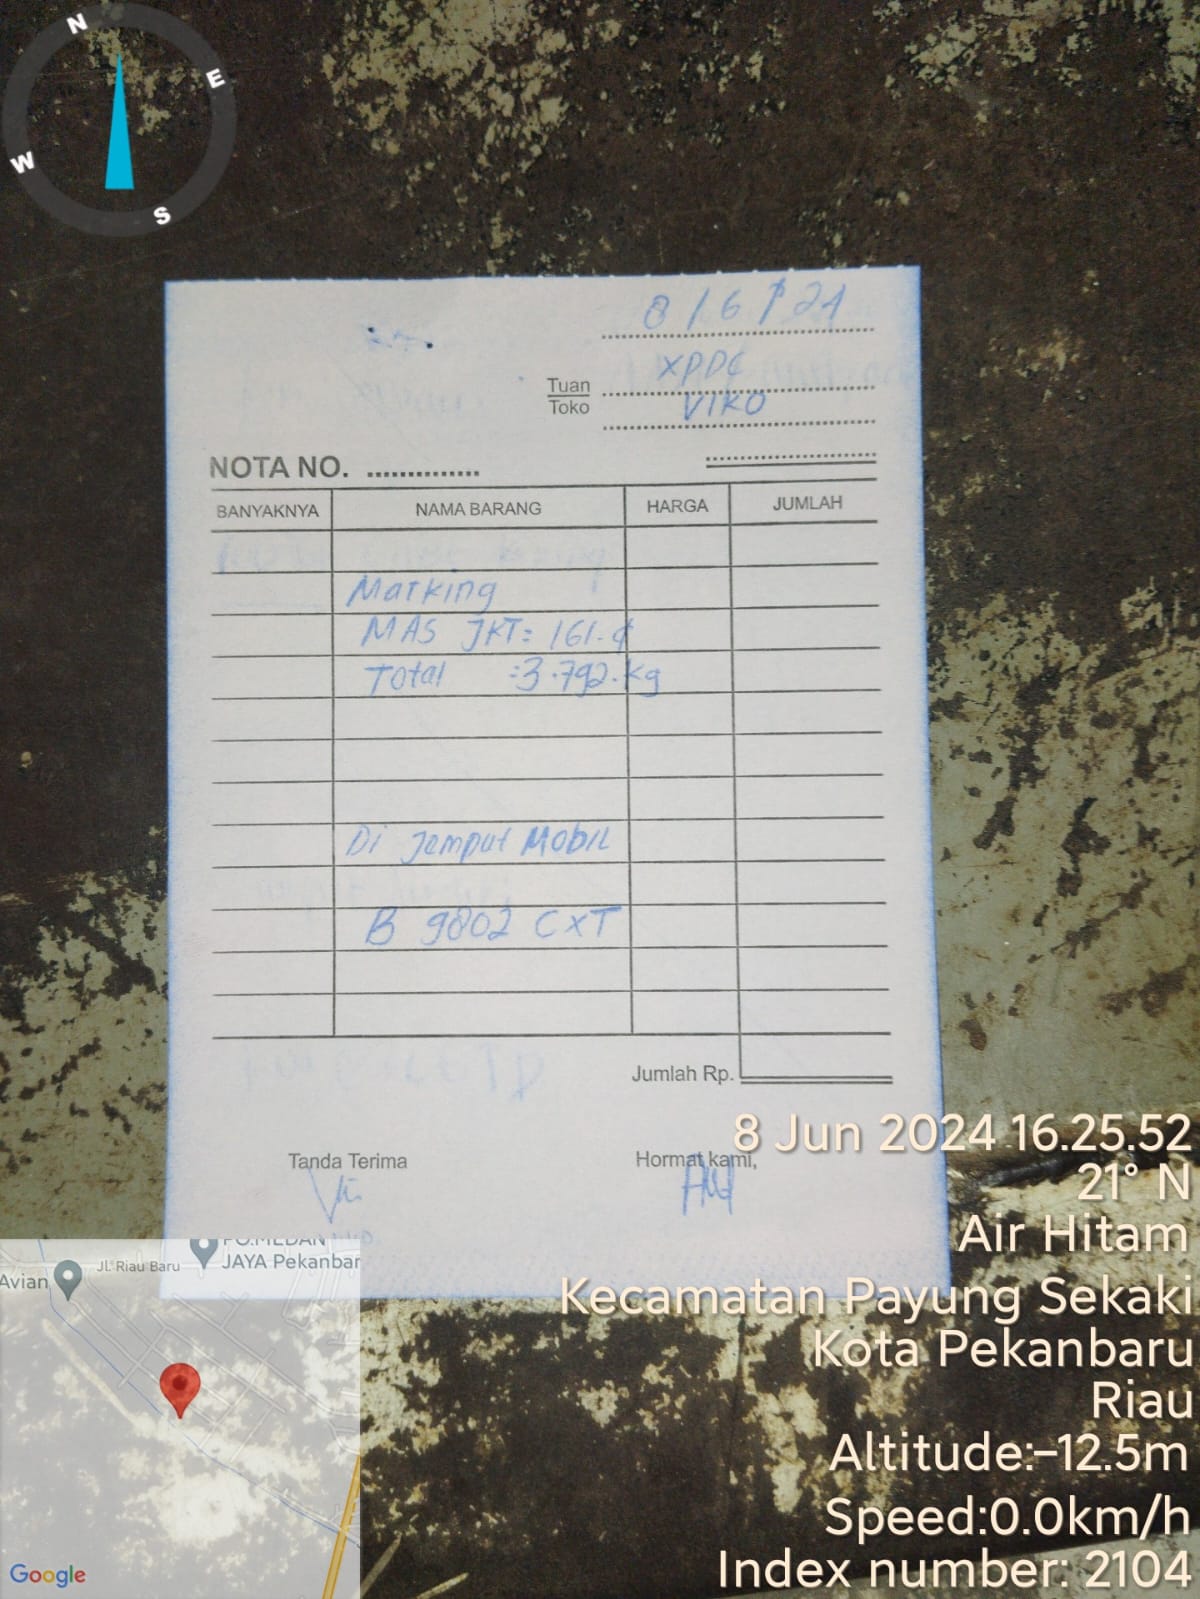 N
E
W
S
8/6/24
XPDC
Tuan
Toko
VIKO
NOTA NO. ..............
BANYAKNYA NAMA BARANG HARGA JUMLAH
Marking
MAS JKT = 161.
Total = 3.792.kg
Di Jemput Mobil
B 9802 CXT
Jumlah Rp.
Tanda Terima Hormat kami,
8 Jun 2024 16.25.52
21° N
Air Hitam
Kecamatan Payung Sekaki
Kota Pekanbaru
Riau
Altitude:-12.5m
Speed:0.0km/h
Index number: 2104
Avian
Jl. Riau Baru
PO.MEDAN
JAYA Pekanbar
Google